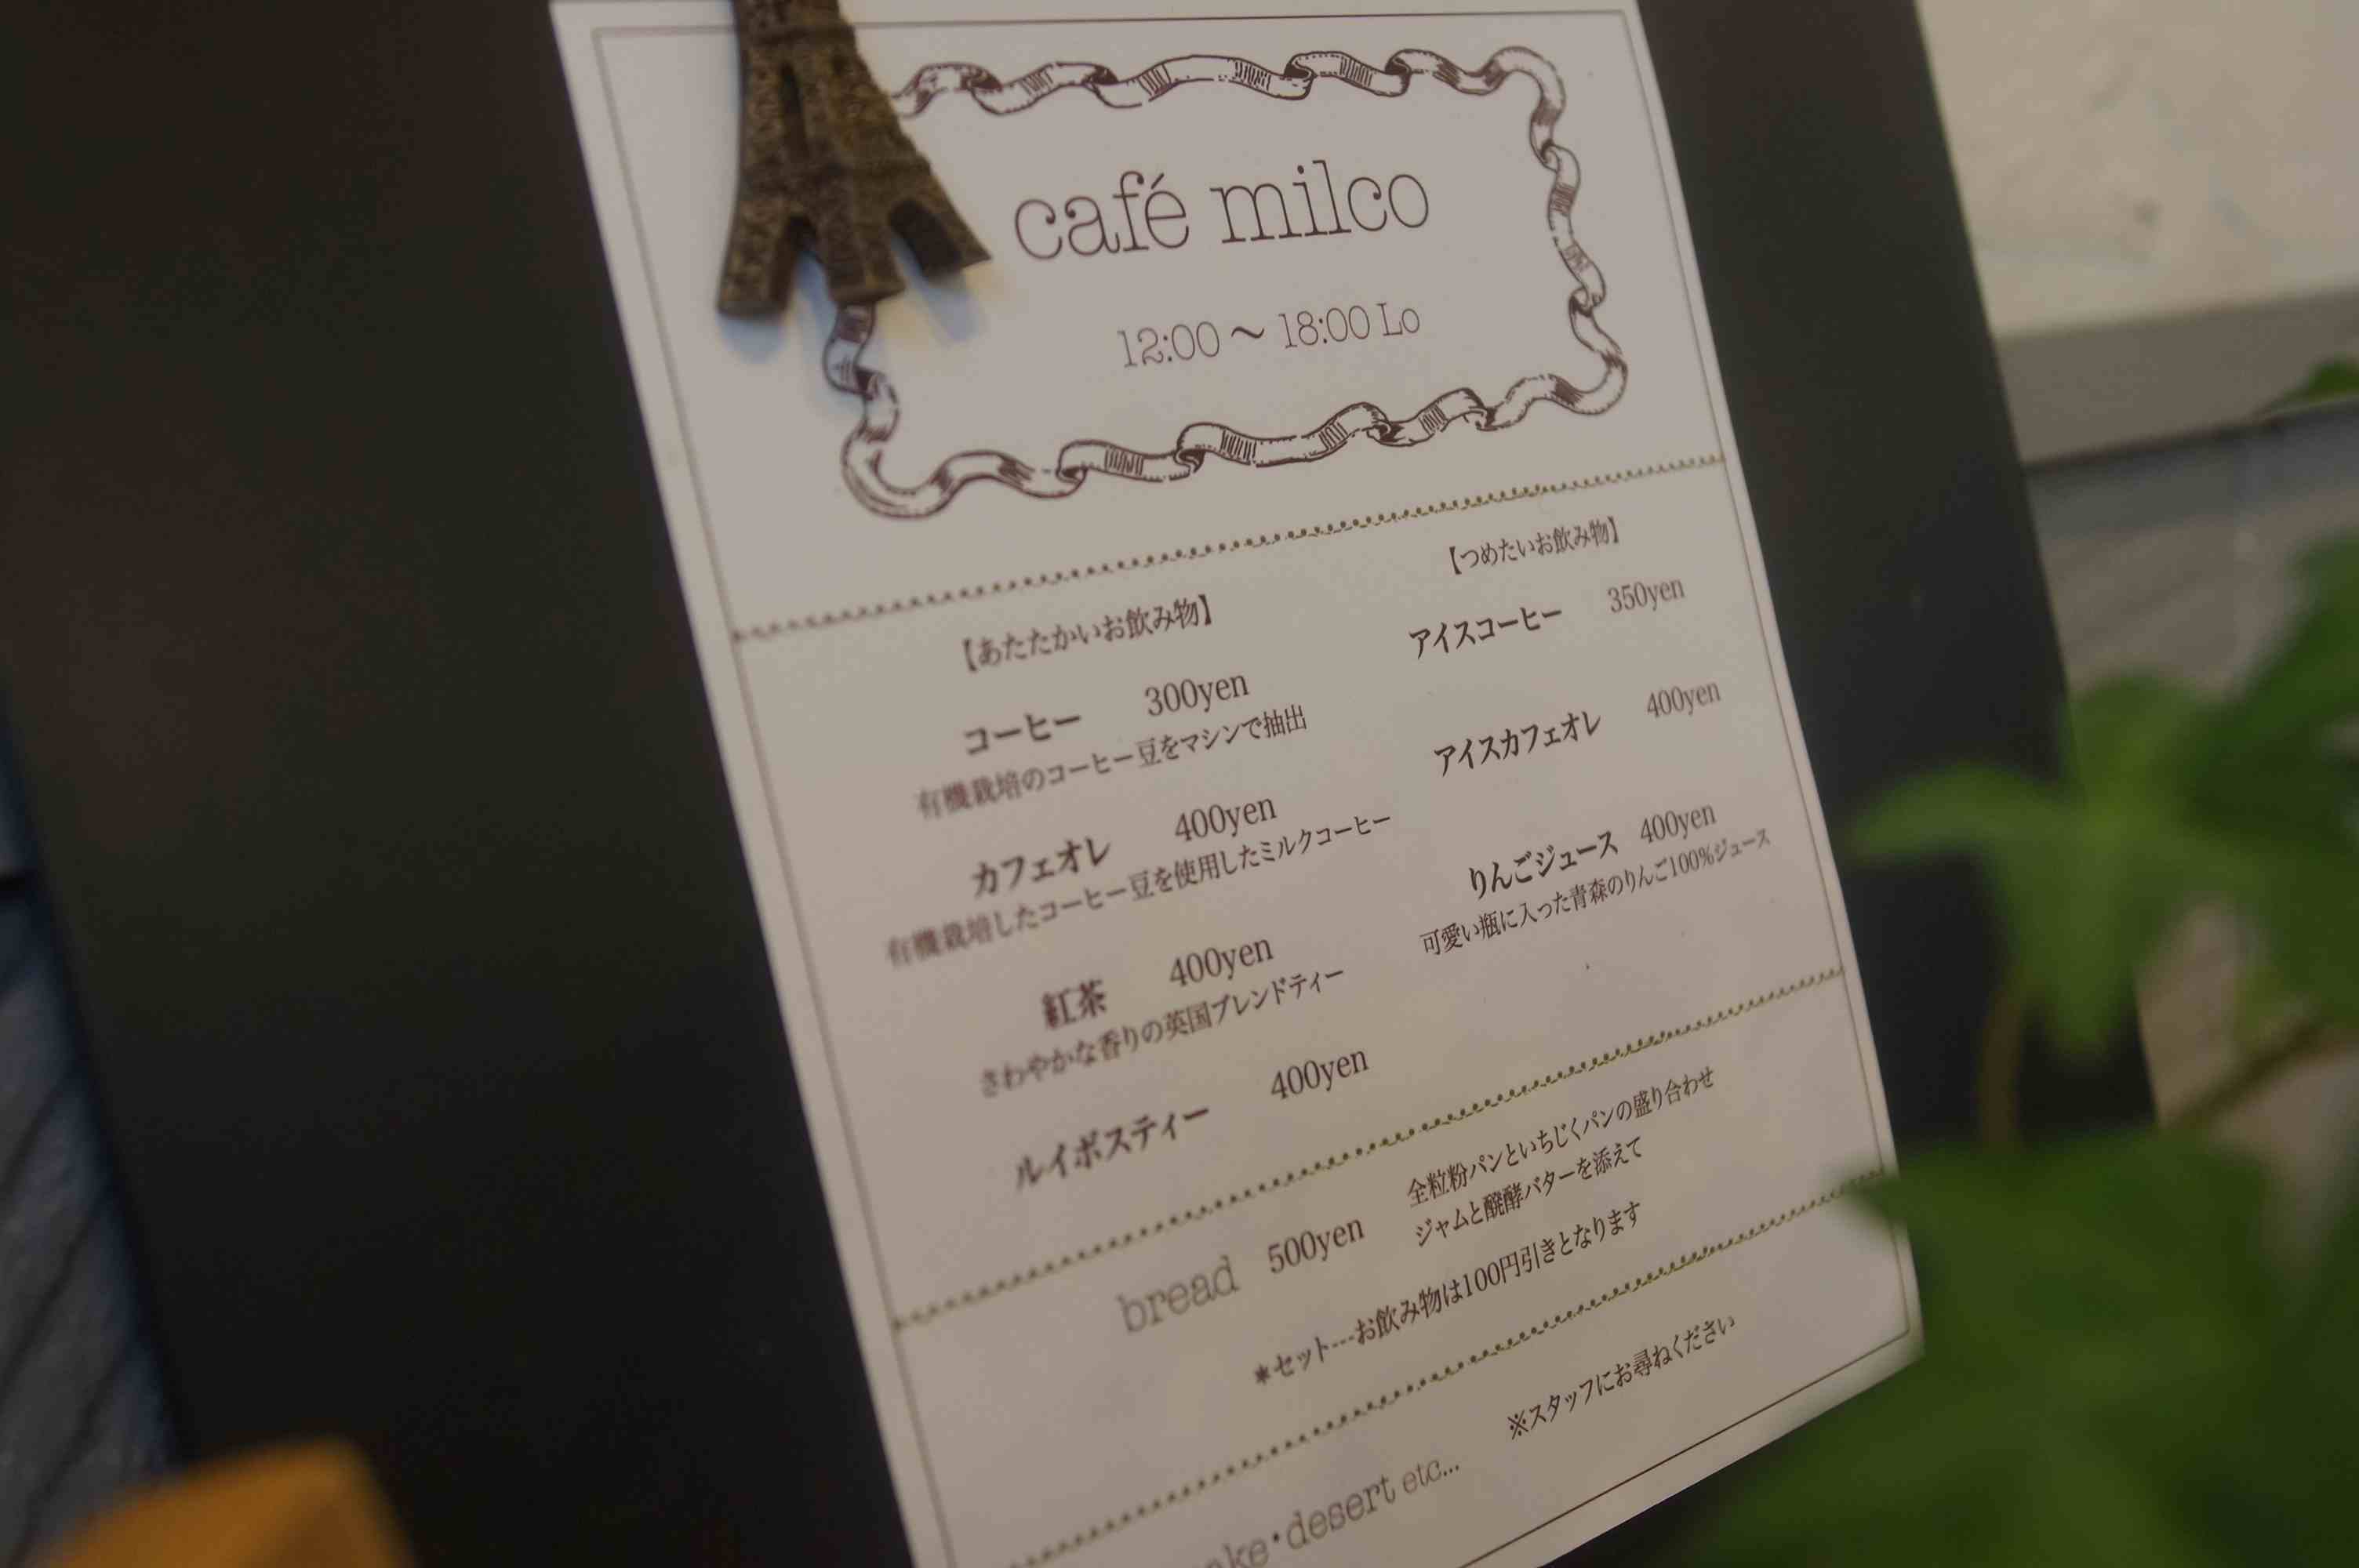 café milco
12:00～18:00 Lo
【あたたかいお飲み物】
コーヒー 300yen
有機栽培のコーヒー豆をマシンで抽出
カフェオレ 400yen
有機栽培したコーヒー豆を使用したミルクコーヒー
紅茶 400yen
さわやかな香りの英国ブレンドティー
ルイボスティー 400yen
【つめたいお飲み物】
アイスコーヒー 350yen
アイスカフェオレ 400yen
りんごジュース 400yen
可愛い瓶に入った青森のりんご100%ジュース
bread 500yen
全粒粉パンといちじくパンの盛り合わせ
ジャムと醗酵バターを添えて
＊セット---お飲み物は100円引きとなります
・desert etc...
※スタッフにお尋ねください